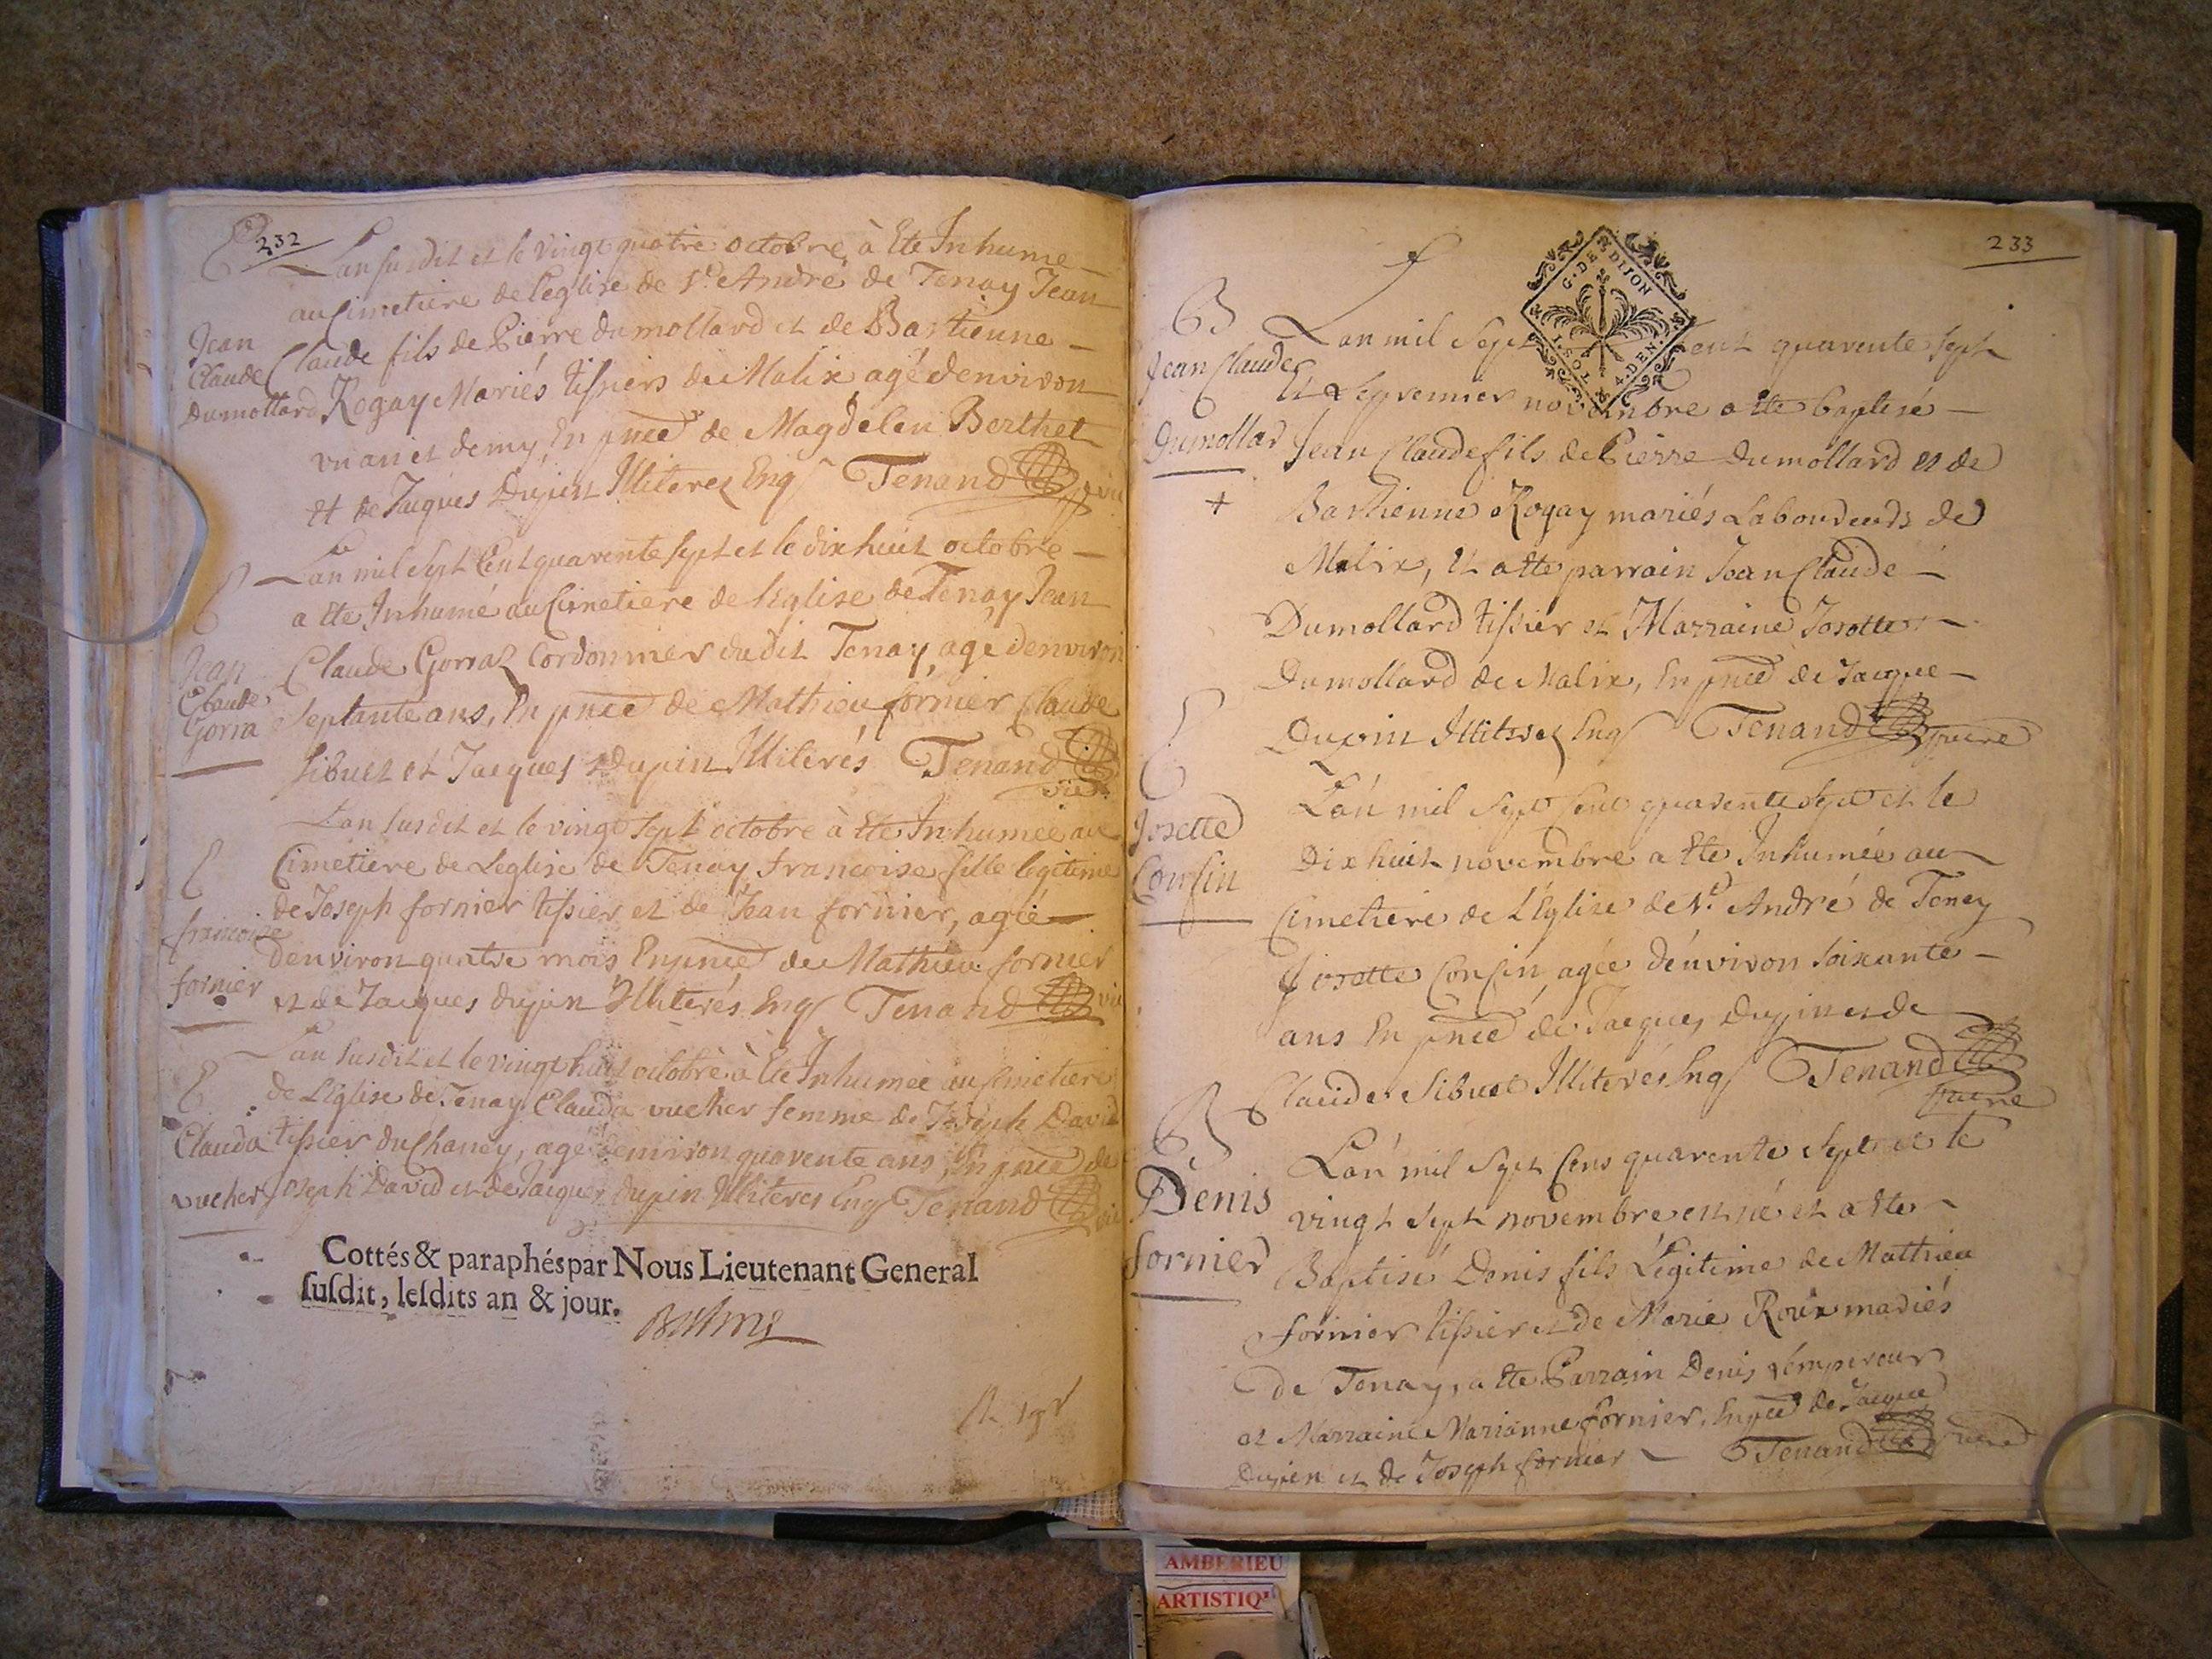 232
E L'an susdit et le vingt quatre octobre, à Ete Inhume
au Cimetiere de l'eglise de St. André de Tenay Jean
Jean Claude Dumollard
Claude fils de Pierre dumollard et de Bastienne
Rogay Mariés tissiers de Malix agé denviron
vn an et demy, En pnce de Magdelen Berthet
et de Jacques Dupin Illiterez Enqs Tenand vic
E L'an mil Sept Cent quarente sept et le dix huit octobre
a ete Inhumé au Cimetiere de l'Eglise de Tenay Jean
Jean Claude Gorra
Claude Gorraz Cordonnier du dit Tenay, agé denviron
Septante ans, En pnce de Mathieu fornier Claude
Sibuet et Jacques Dupin Illiterés Tenand vic
L'an susdit et le vingt sept octobre à Ete Inhumée au
E Cimetiere de Leglise de Tenay francoise fille legitime
de Joseph fornier tissier et de Jean fornier, agée
francoise fornier
denviron quatre mois En pnce de Mathieu fornier
et de Jacques dupin Illiterés Enqs Tenand vic
L'an susdit et le vingt huit octobre à Ete Inhumee au Cimetiere
E de L'Eglise de Tenay Clauda vucher femme de Joseph David
Clauda vucher
tissier du Chaney, agé denviron quarente ans, En pnce de
Joseph David et de Jacques dupin Illiteres Enqs Tenand vic
Cottés & paraphés par Nous Lieutenant General
susdit, lesdits an & jour.
233
G. DE DIJON
1. SOL 4. DEN.
B L'an mil Sept Cent quarente sept
Jean Claude Dumollar
Et Le premier novembre a ete baptisé
Jean Claude fils de Pierre Dumollard et de
+ Bastienne Rogay mariés Laboureurs de
Malix, Et a ete parrain Jean Claude
Dumollard tissier et Marraine Josette
Dumollard de Malix, En pnce de Jacque
Dupin Illiterez Enqs Tenand vicaire
E L'an mil Sept Cent quarente sept et le
Josette Consin
Dix huit novembre a ete Inhumée au
Cimetiere de L'Eglise de St. André de Teney
Josette Consin agée d'environ soixante
ans En pnce de Jacques Dupin et de
Claude Sibuet Illiterés Enqs Tenand vicaire
B L'an mil Sept Cens quarente Sept et le
Denis fornier
vingt Sept novembre est né et a ete
Baptisé Denis fils Legitime de Mathieu
fornier tissier et de Marie Roux mariés
de Tenay, a ete Parrain Denis Lempereur
et Marraine Marianne fornier, En pnce de Jacque
Dupin et de Joseph fornier Tenand vicaire
AMBERIEU
ARTISTIQU